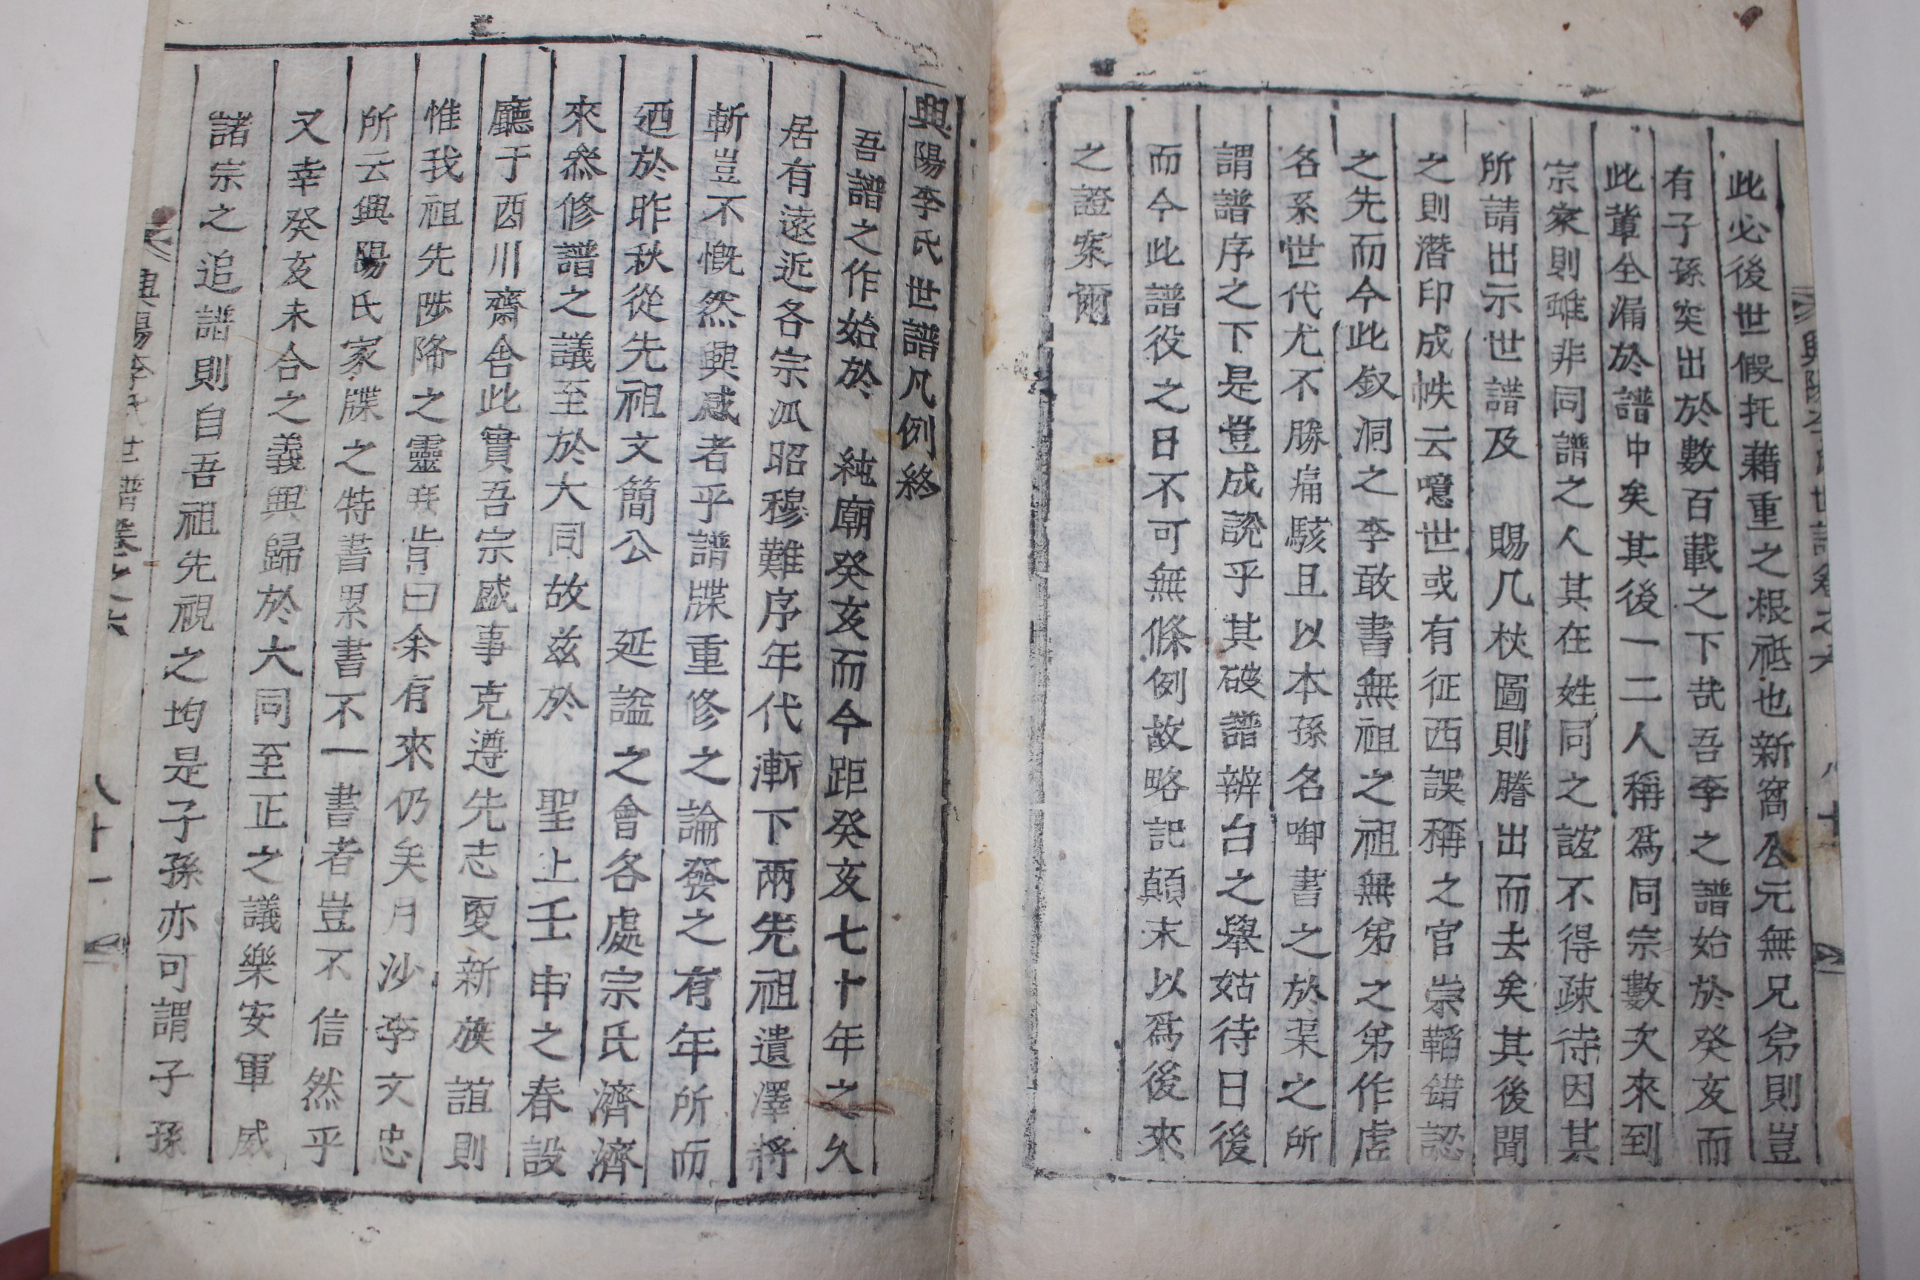 此必後世假托藉重之根祗也新窩公元無兄弟則豈
有子孫突出於數百載之下哉吾李之譜始於癸亥而
此軰全漏於譜中矣其後一二人稱爲同宗數次來到
宗家則雖非同譜之人其在姓同之誼不得疎待因其
所請出示世譜及 賜几杖圖則謄出而去矣其後聞
之則潛印成帙云噫世或有征西誤稱之官崇韜錯認
之先而今此釵洞之李敢書無祖之祖無弟之弟作虛
名系世代尤不勝痛駭且以本孫名啣書之於某之所
謂譜序之下是豈成說乎其破譜辨白之擧姑待日後
而今此譜役之日不可無條例故略記顛末以爲後來
之證案爾
興陽李氏世譜凡例終
吾譜之作始於 純廟癸亥而今距癸亥七十年之久
居有遠近各宗派昭穆難序年代漸下兩先祖遺澤將
斬豈不慨然興感者乎譜牒重修之論發之有年所而
廼於昨秋從先祖文簡公 延謚之會各處宗氏濟濟
來叅修譜之議至於大同故玆於 聖上壬申之春設
廳于酉川齋舍此實吾宗盛事克遵先志更新族誼則
惟我祖先陟降之靈 肯曰余有來仍矣月沙李文忠
所云興陽氏家牒之特書累書不一書者豈不信然乎
又幸癸亥未合之義興歸於大同至正之議樂安軍威
諸宗之追譜則自吾祖先視之均是子孫亦可謂子孫
興陽李氏世譜卷之六 八十一